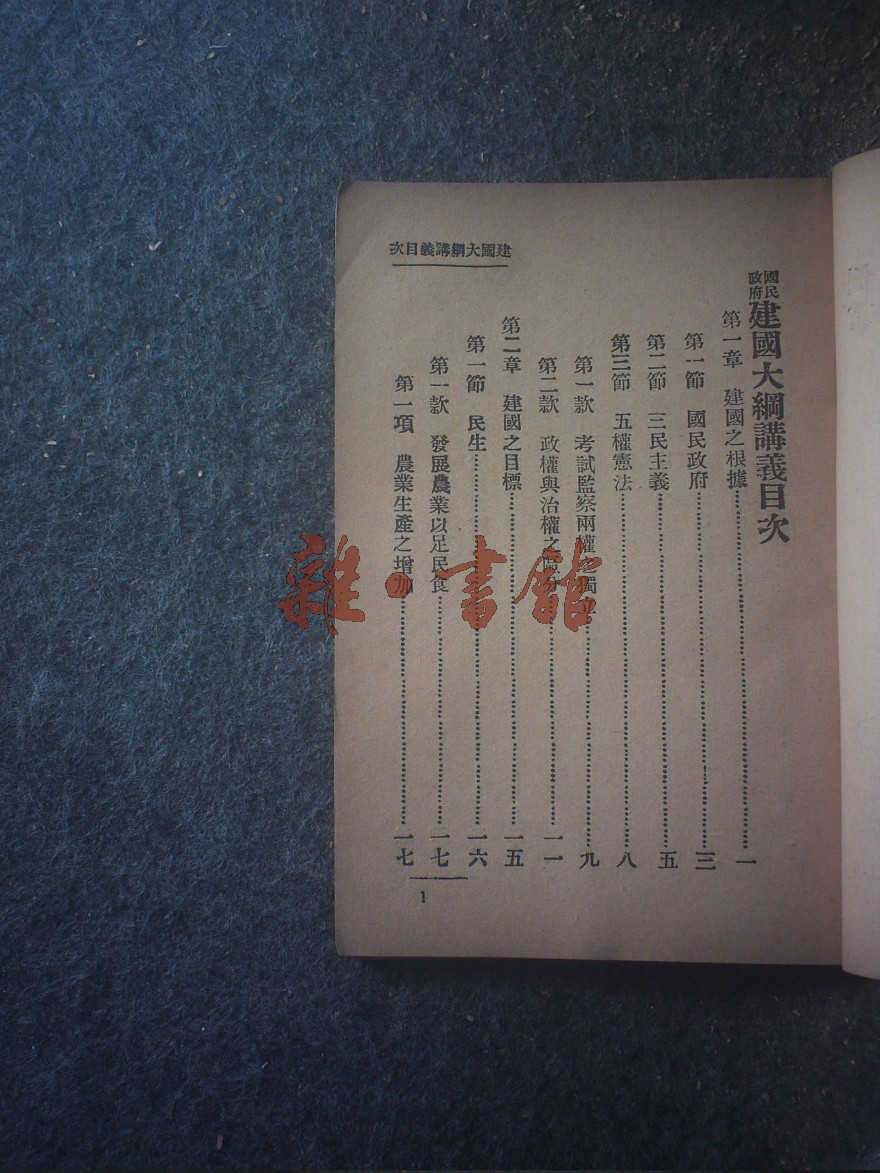 建國大綱講義目次
國民政府建國大綱講義目次
第一章　建國之根據……一
第一節　國民政府……三
第二節　三民主義……五
第三節　五權憲法……八
第一款　考試監察兩權之獨立……九
第二款　政權與治權之區分……一一
第二章　建國之目標……一五
第一節　民生……一六
第一款　發展農業以足民食……一七
第一項　農業生產之增加……一七
1
雜·書館